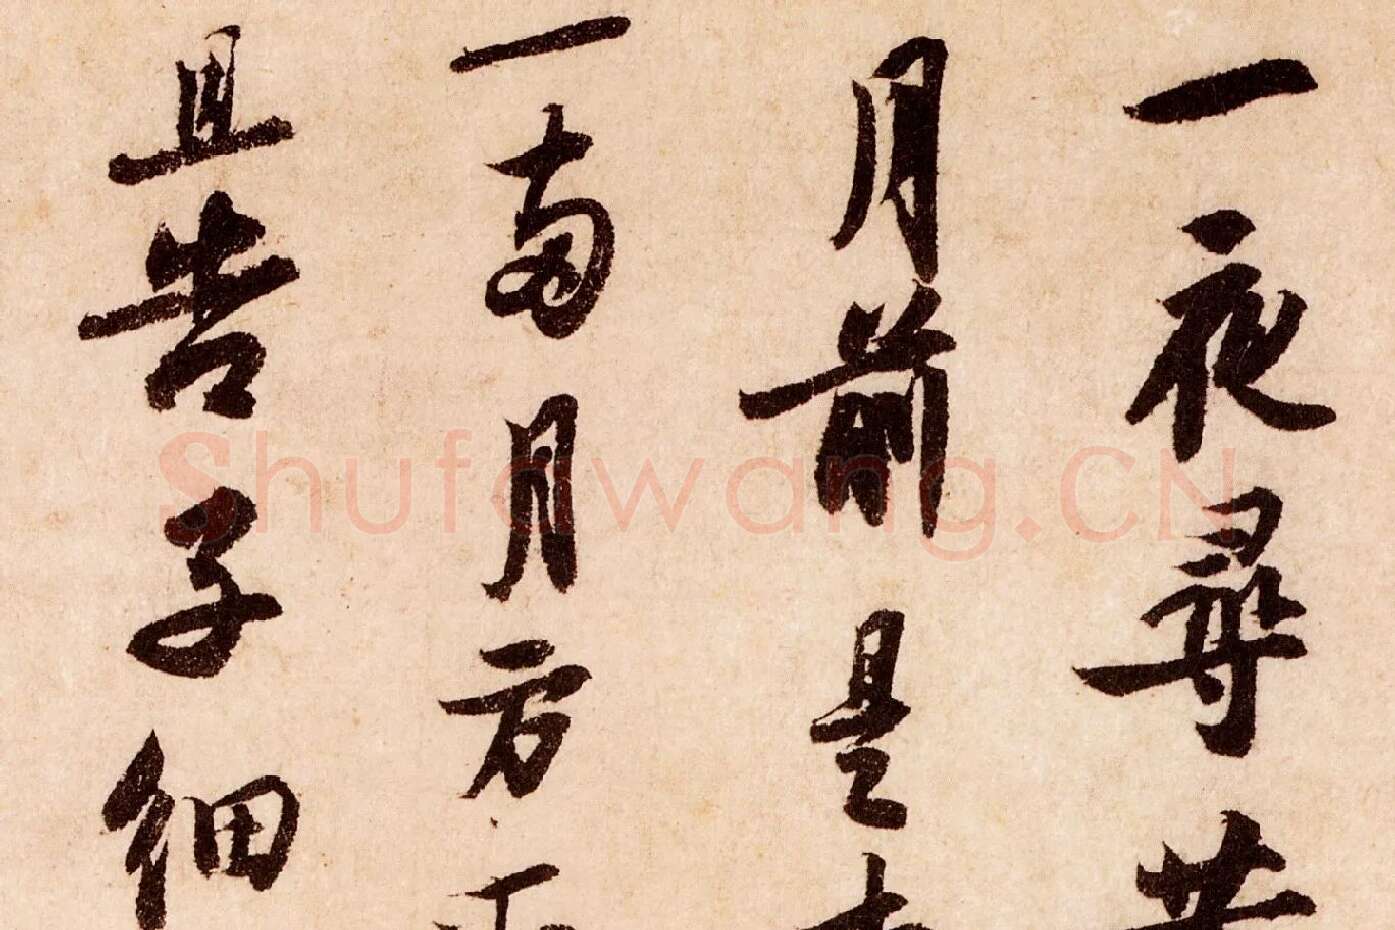 一夜尋
月前是
一兩月方
且告子細
Shufawang.CN